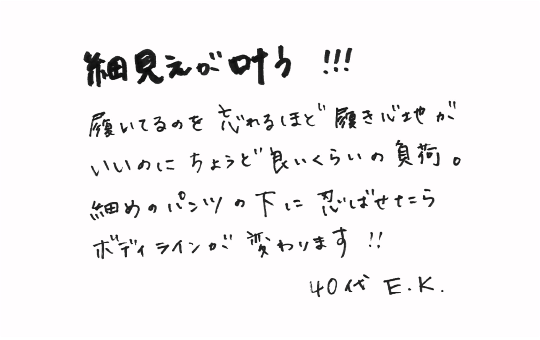 細見えが叶う !!!
履いてるのを忘れるほど履き心地が
いいのにちょうど良いくらいの負荷。
細めのパンツの下に忍ばせたら
ボディラインが変わります !!
40代 E.K.